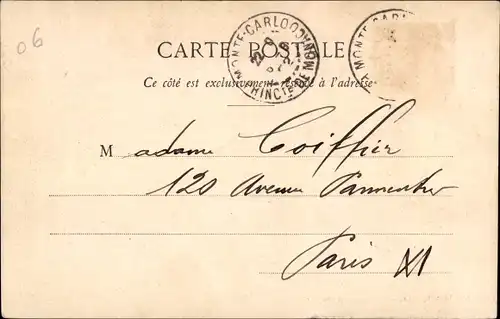 06
CARTE POSTALE
MONTE-CARLO
PRINCIPTÉ DE MONACO
MONTE-CARL
Ce côté est exclusivement réservé à l'adresse
Madame Coiffier
120 Avenue Parmentier
Paris XI